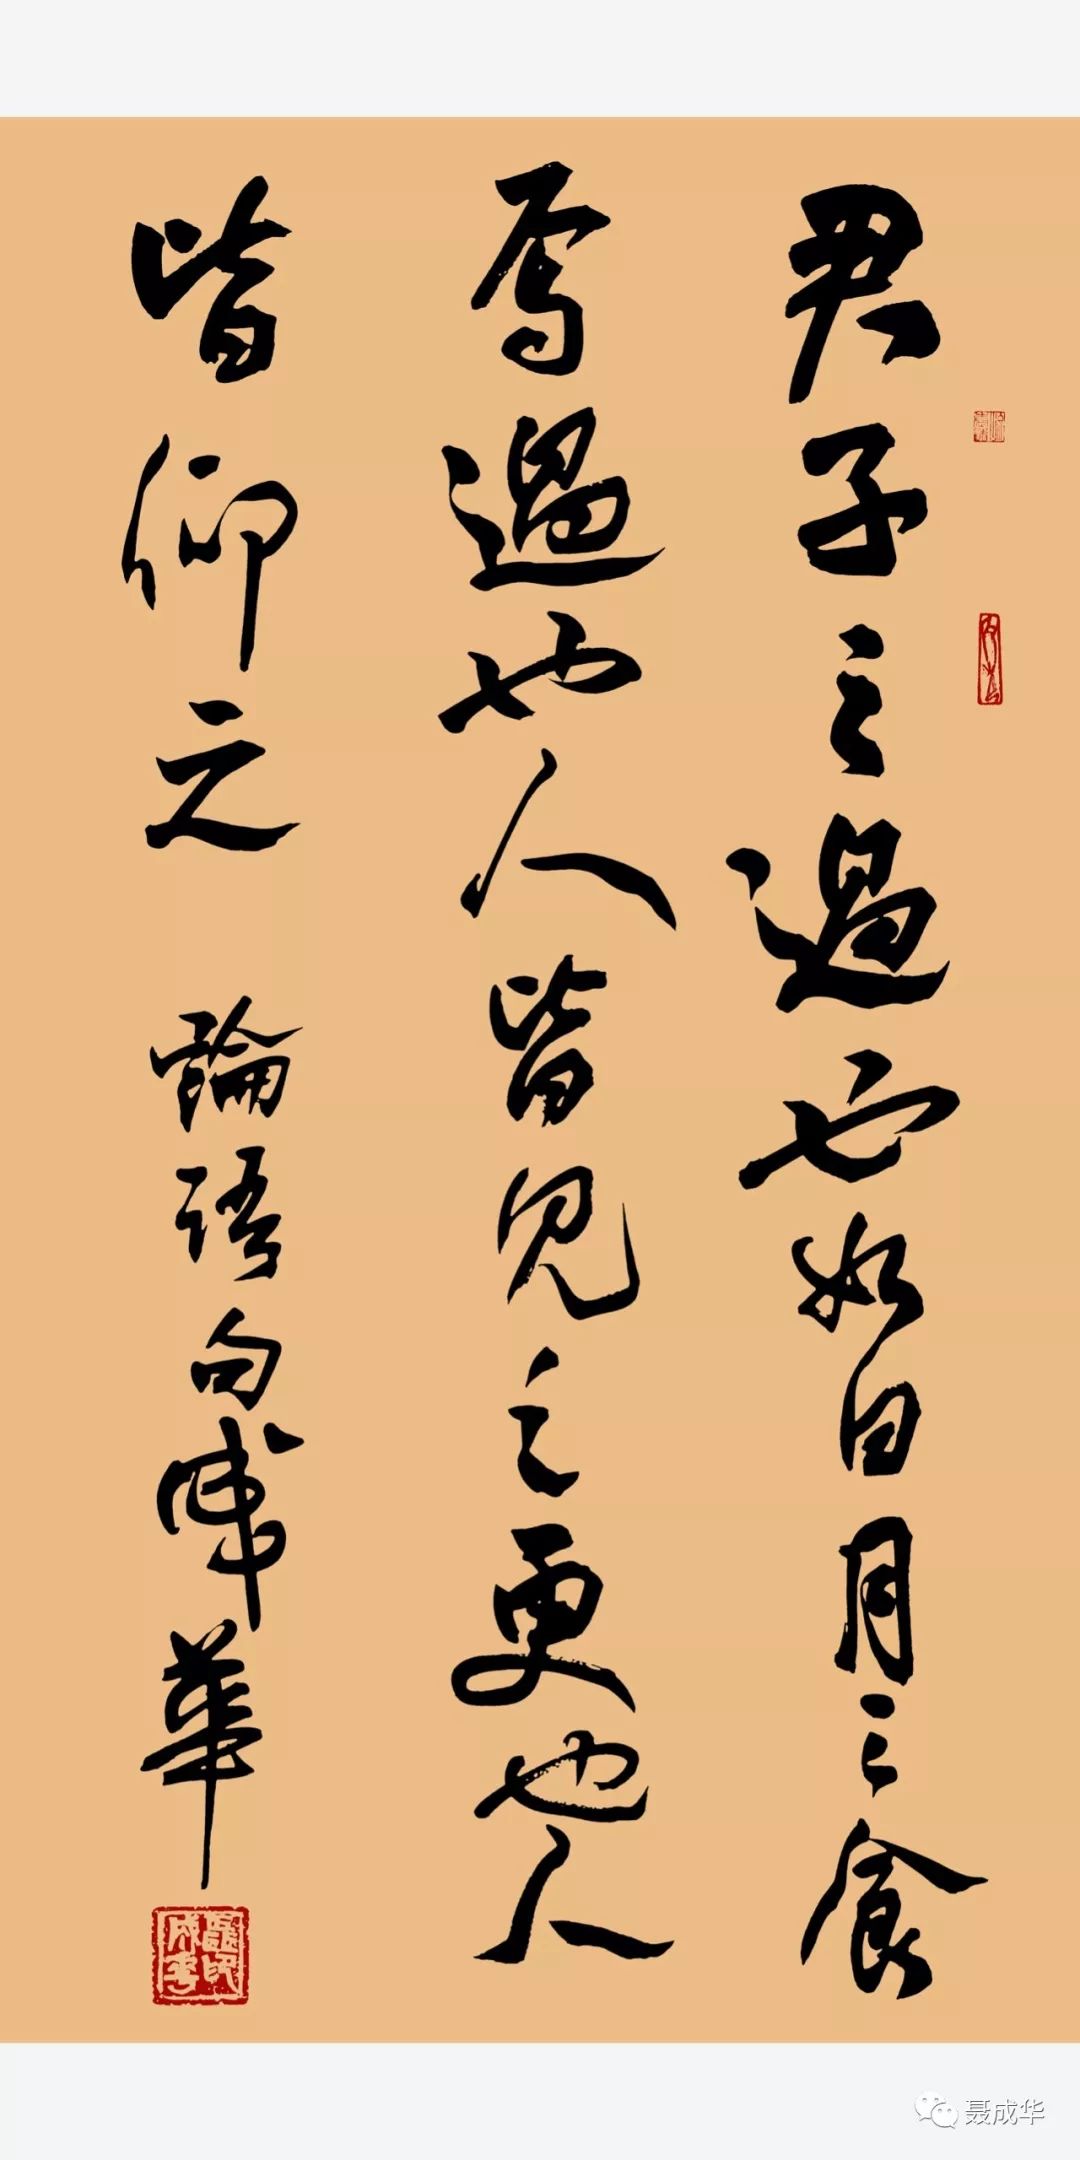 君子之過也如日月之食
焉過也人皆見之更也人
皆仰之 論語句成華
聂成华